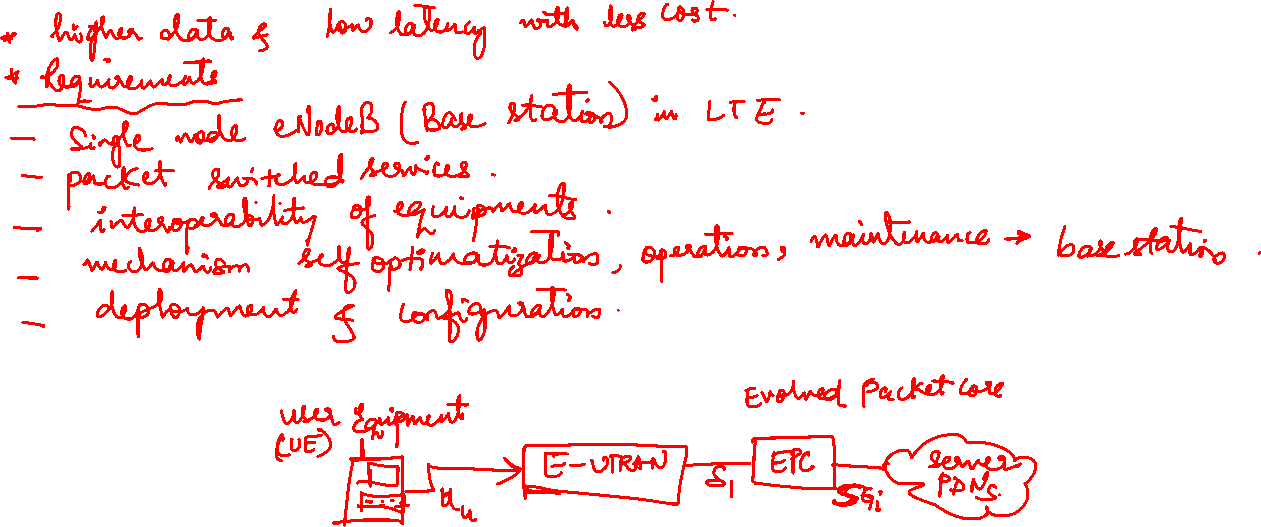 * higher data & low latency with less cost.
* Requirements
- Single node eNodeB (Base station) in LTE.
- packet switched services.
- interoperability of equipments.
- mechanism self optimatization, operation, maintenance → base station.
- deployment & configuration.
Evolved Packet Core
User Equipment
(UE)
E-UTRAN
EPC
server
PDNs
Uu
S1
SGi